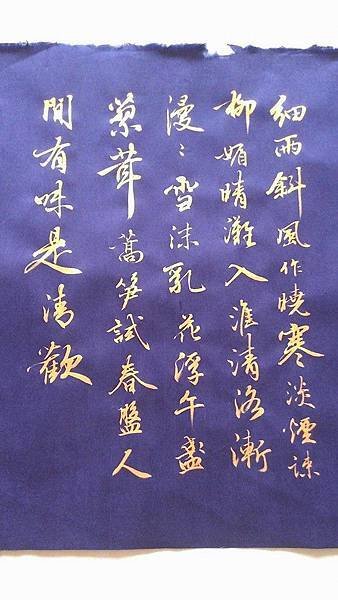 細雨斜風作曉寒淡煙疎
柳媚晴灘入淮清洛漸
漫〻雪沫乳花浮午盞
蓼茸蒿笋試春盤人
間有味是清歡